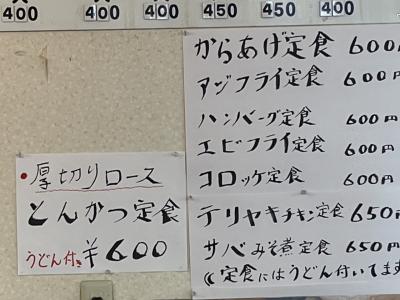 400 400 400 450 450 400
からあげ定食 600円
アジフライ定食 600円
ハンバーグ定食 600円
エビフライ定食 600円
コロッケ定食 600円
テリヤキチキン定食 650円
サバみそ煮定食 650円
《定食にはうどん付いてます
・厚切りロース
とんかつ定食
うどん付き ¥600